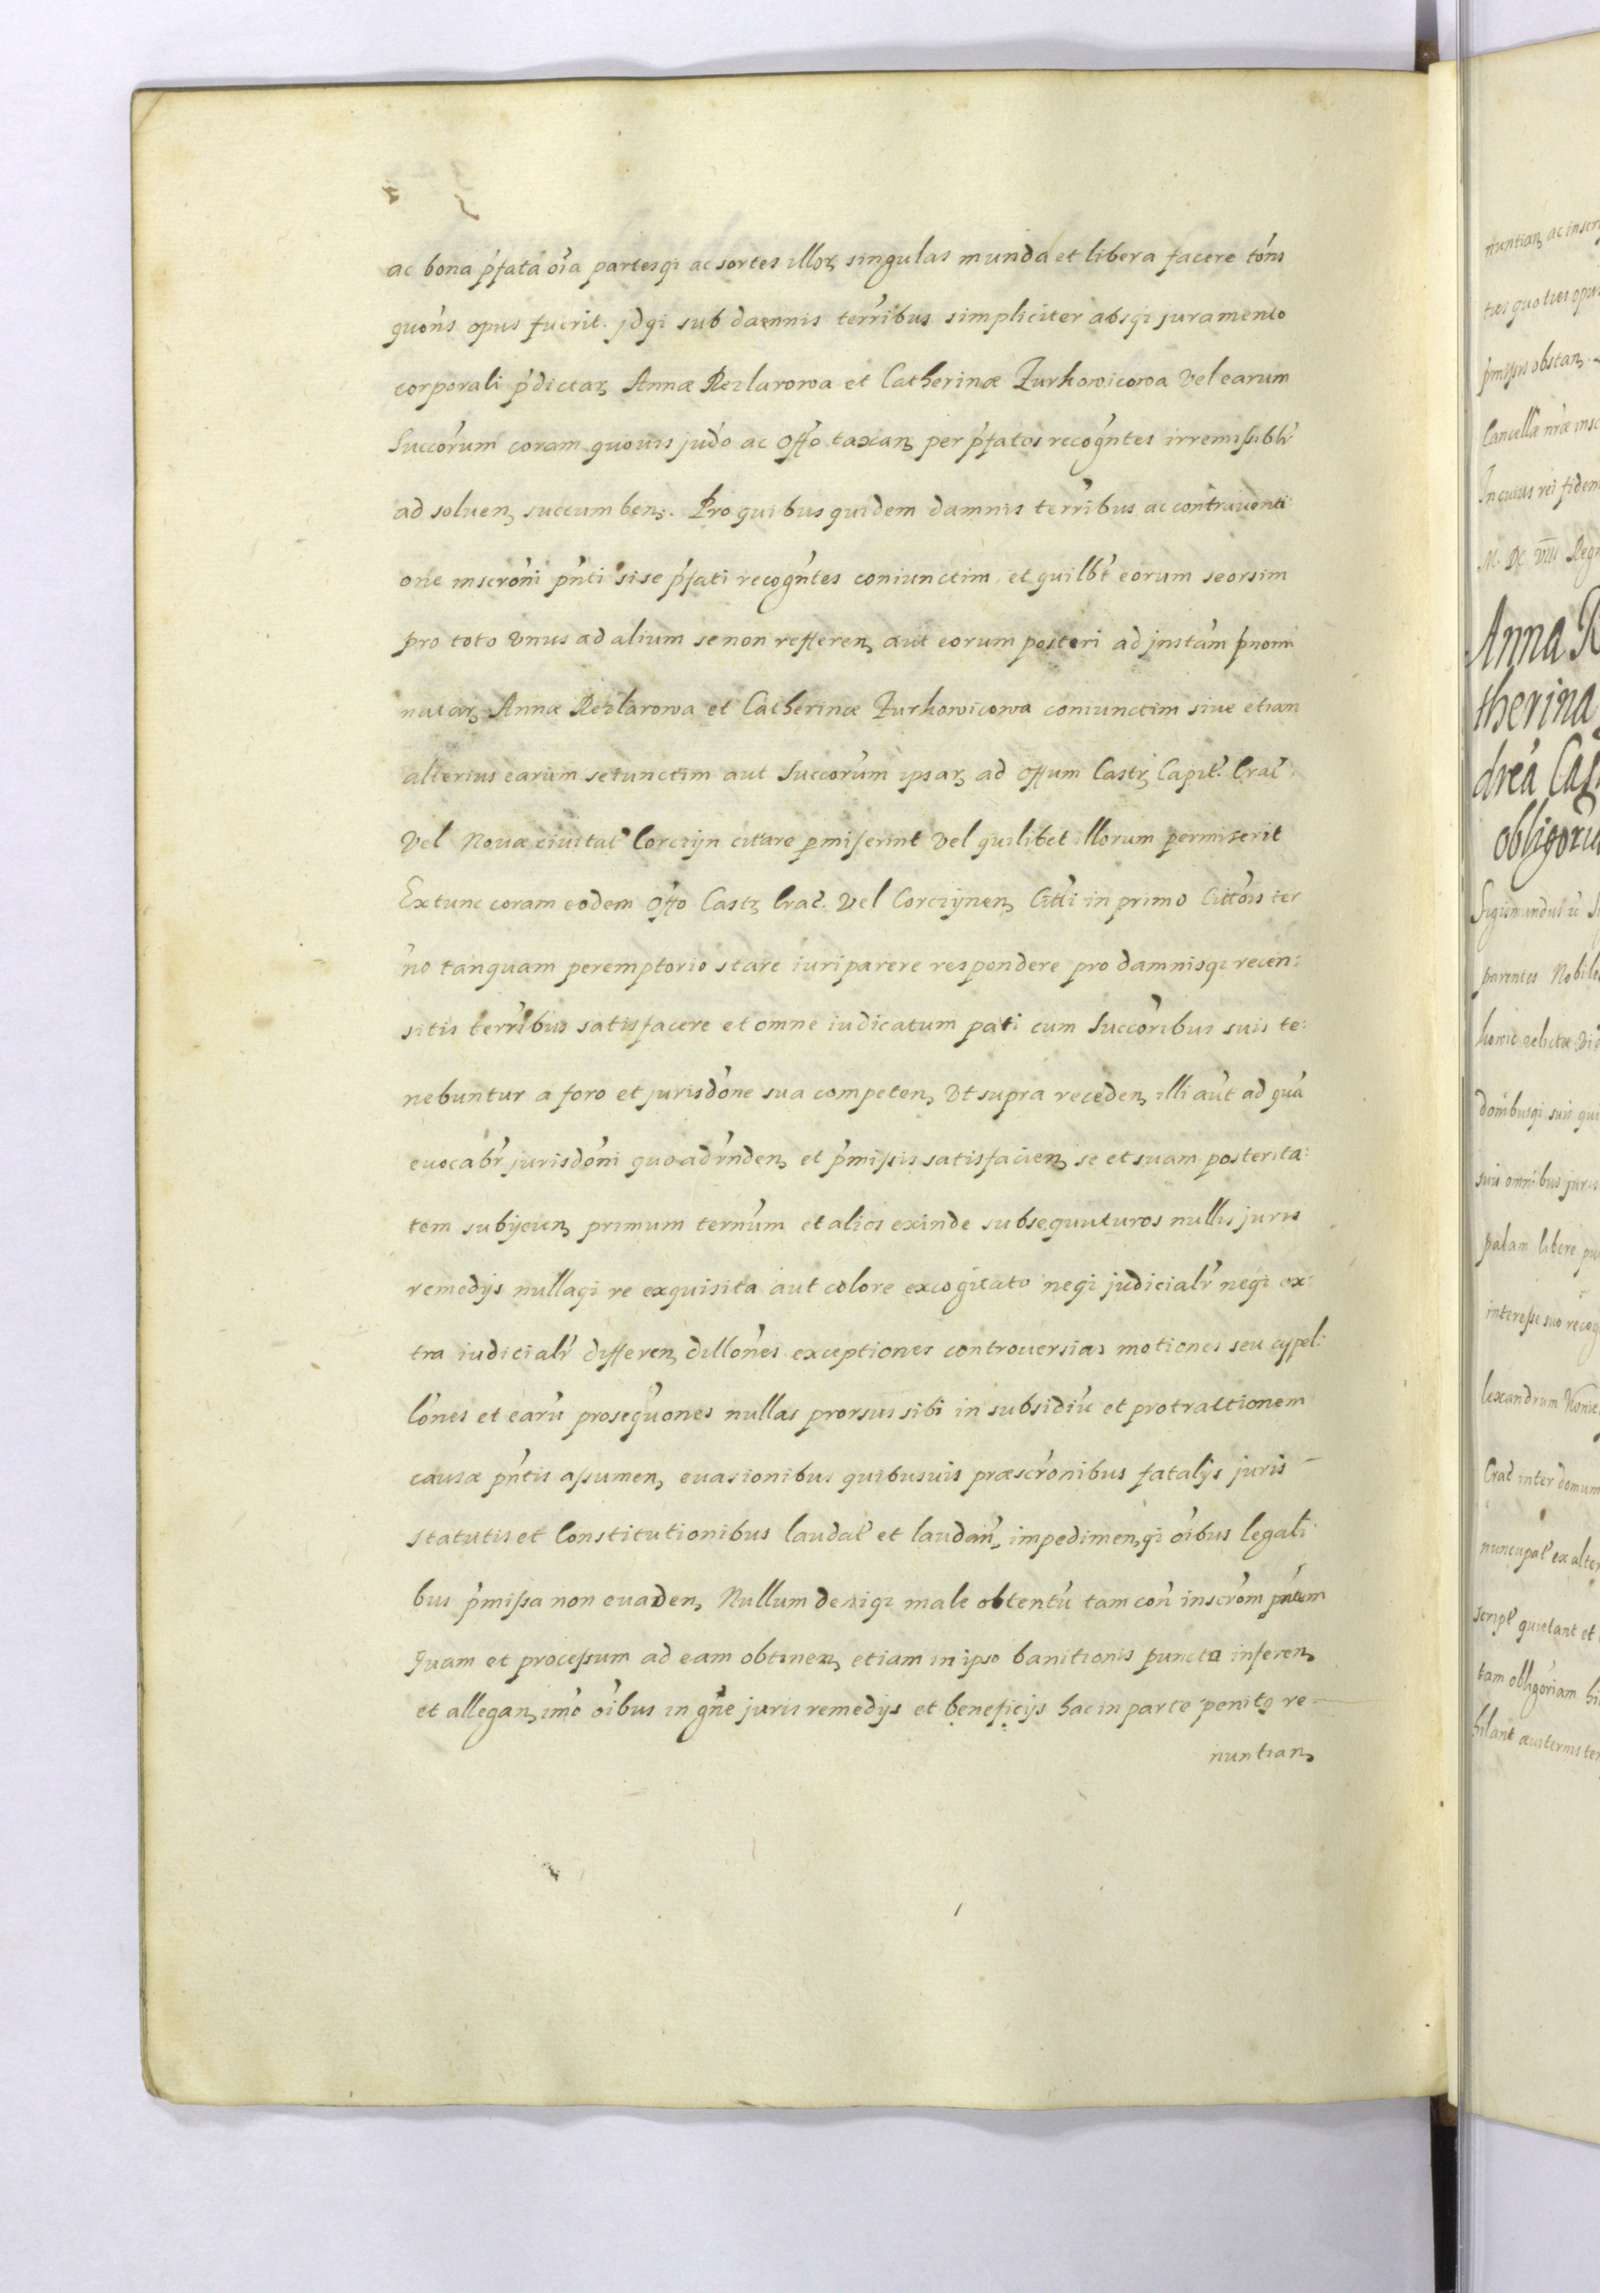 ac bona p̃fata oĩa partesq; ac sortes illoꝝ singulas munda et libera facere tõns
quõns opus fuerit. jdq; sub damnis terrĩbus simpliciter absq; juramento
corporali p̃dictaꝝ Annæ Rezlarowa et Catherinæ Zurkowicowa vel earum
Succõrum coram quouis judõ ac Offõ taxanꝫ per p̃fatos recogñtes irremissibĩlr
ad soluenꝫ succumbenꝫ. Pro quibus quidem damnis terrĩbus ac contrauenti
one inscrõni pñti si se p̃fati recogñtes coniunctim et quilb̃t eorum seorsim
pro toto vnus ad alium se non refferenꝫ aut eorum posteri ad jnstãm pñomi
nataꝝ Annæ Rezlarowa et Catherinæ Zurkowicowa coniunctim siue etiam
alterius earum seiunctim aut Succõrum ipsaꝝ ad Offum Castrꝫ Capit̃. Crac̃.
vel Nouæ ciuitat̃ Corczyn citare pmiserint vel quilibet illorum permiserit
Extunc coram eodem Offõ Castrꝫ Crac̃. vel Corczynenꝫ Citt̃i in primo Cittõis ter
ño tanquam peremptorio stare iuri parere respondere pro damnisq; recen:
sitis terrĩbus satisfacere et omne iudicatum pati cum Succõribus suis te:
nebuntur a foro et jurisdõne sua competenꝫ vt supra recedenꝫ illi aũt ad quã
euocabr̃ jurisdõni quo ad rñdenꝫ et p̃missis satisfacienꝫ se et suam posterita:
tem subijcienꝫ primum terñum et alios exinde subsequuturos nullis juris
remedijs nullaq; re exquisita aut colore excogitato neq; judicialr̃ neq; ex:
tra iudicialr̃ differenꝫ dillõnes exceptiones controuersias motiones seu appel:
lõnes et earũ prosequõnes nullas prorsus sibi in subsidiũ et protractionem
causæ pñtis assumenꝫ euasionibus quibusuis præscrõnibus fatalijs juris
statutis et Constitutionibus laudat̃ et laudañ, impedimenꝫq; oĩbus legali
bus p̃missa non euadenꝫ Nullum deniq; male obtentũ tam coñ inscrõm pñtem
quam et processum ad eam obtinenꝫ etiam in ipso banitionis puncto inferenꝫ
et alleganꝫ imõ oĩbus in gñe juris remedijs et beneficijs hac in parte penitꝰ re
nuntianꝫ
nuntianꝫ ac inscr
ties quoties opus
p̃missis obstanꝫ.
Cancellã nr̃æ insc
In cuius rei fidem
M. DC VIII Regn
Anna R
therina
dreã Cas
obligõriũ
parentes Nobile
donĩbusq; suis qui
suis omnibus juris
palam libere pu
interesse suo recog
lexandrum
Crac̃ inter domum
nuncupat̃ ex alter
script̃ quietant et
tam obligõriam